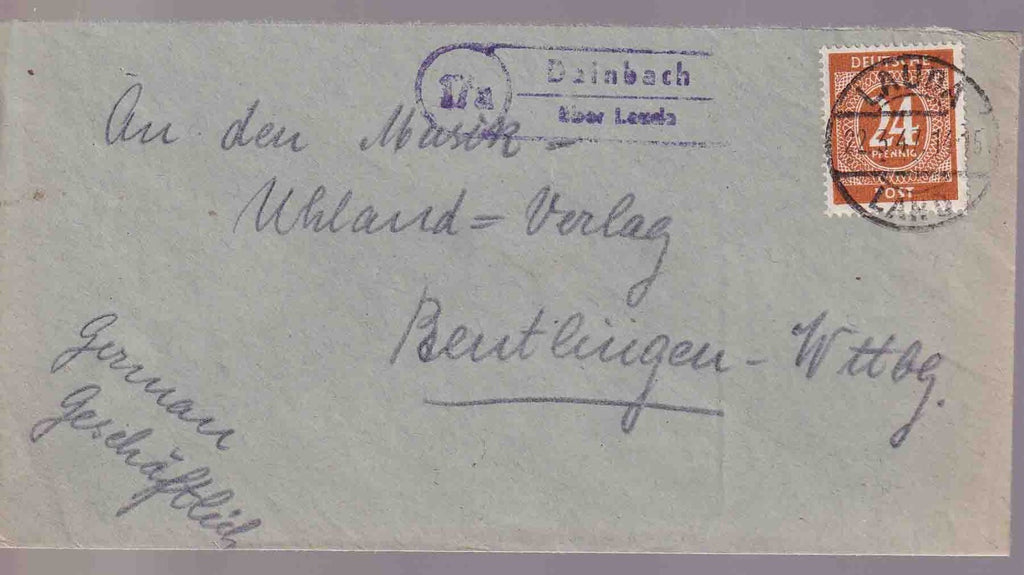 17a
Dainbach
über Lauda
DEUTSCHE
24
PFENNIG
POST
LAUDA
22.3.4
LAUDA
An den Musik-
Uhland-Verlag
Reutlingen-Wttbg.
German
Geschäftlich